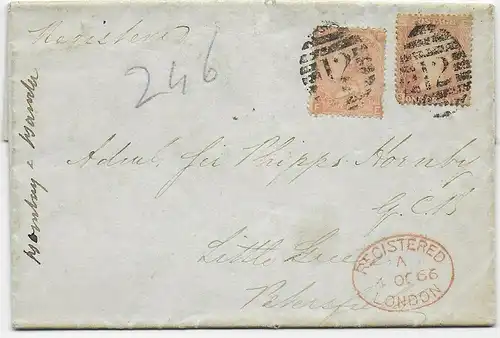 Registered
246
12
12
Hornby
Adml. Sir Phipps Hornby
G.C.B.
Little Green
Petersfi
REGISTERED
A
OC 66
LONDON